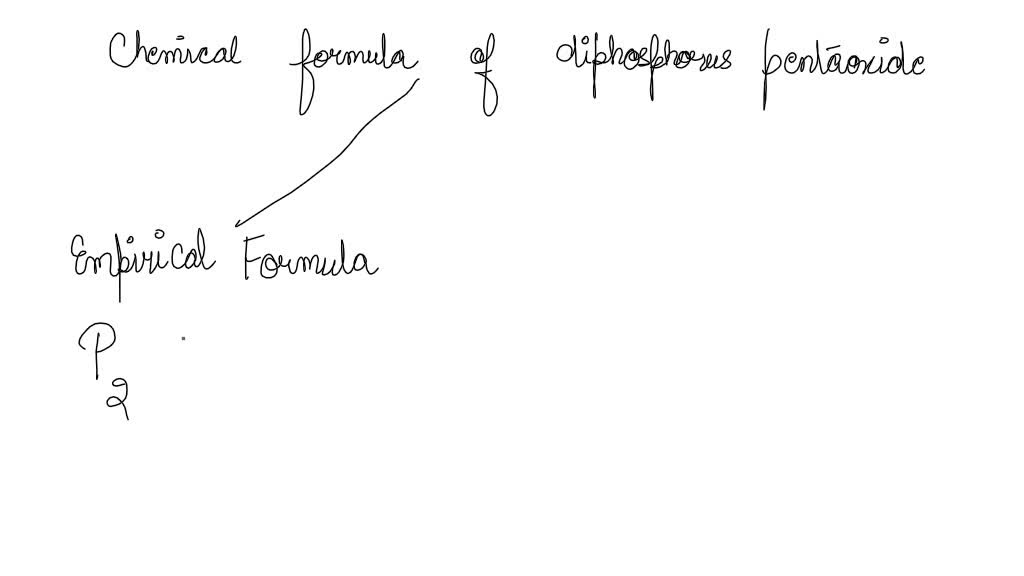 Chemical formula of diphosphorus pentaoxide
Empirical Formula
P
2